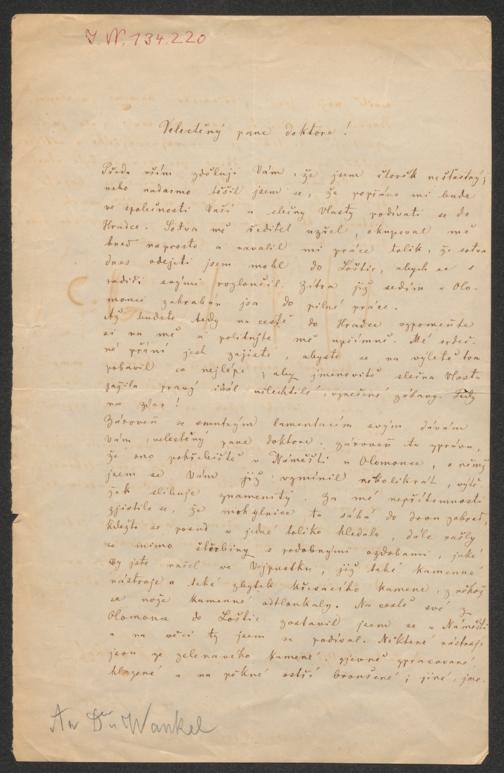 J. N. 134.220
Velectěný pane doktore!
Přede vším zděluji Vám, že jsem člověk nešťastný,
neboť nadarmo těšil jsem se, že popřáno mi bude
ve společnosti Vaší a slečny Vlasty podívati se do
Hradce. Sotva mě ředitel uzřel, okupoval mě
hned naprosto a navalil mi práce tolik, že sotva
dnes odejeti jsem mohl do Loštic, abych se s
rodiči svými rozloučil. Zítra již sedím v Olo-
mouci zahrabán jsa do pilné práce.
Až budete tedy na cestě do Hradce vzpomeňte
si na mě a politujte mě upřímně. Mé srdeč-
né přání jest zajisté, abyste se na výletu tom
pobavil co nejlépe, aby jmenovitě slečna Vlasta
zažila pravý ušlechtilé, vznešené zábavy. Tedy
na zdar!
Zároveň se smutným lamentacím svým dávám
Vám, velectěný pane doktore, zároveň tu zprávu,
že ono pohřebiště v Náměšti u Olomouce, o němž
jsem se Vám již zmínil několikrát, výtě-
žek slibuje znamenitý. Za mé nepřítomnosti
zjistilo se, že mohylnice ta sáhá do dvou zahrad,
kdežto se posud v jedné toliko hledalo, dále našly
se mimo štěrbiny s podobnými ozdobami, jaké
by jste našel ve Výpustku, již také kamenné
nástroje a také zbytek křesacího kamene, z něhož
se nože kamenné odtloukaly. Na cestě své z
Olomouce do Loštic zastavil jsem se v Náměšti
a na věci ty jsem se podíval. Některé nástroje
jsou ze zelenavého kamene, zjevně zpracované
hlazené a na pěkné ostří broušené; jiné, jme-
An Dr. Wankel